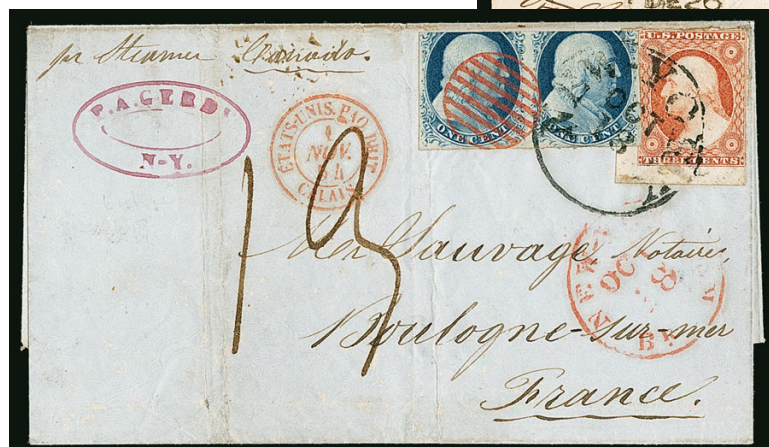 DE 26
pr Steamer
P.A. GERD
N-Y.
ETATS-UNIS. PAQ. BRIT.
1
NOV.
54
CALAIS
ONE CENT
ONE CENT
U.S. POSTAGE
THREE CENTS
NEW YORK
OCT
OCT
8
13
Sauvage Notaire,
Boulogne-sur-mer
France.